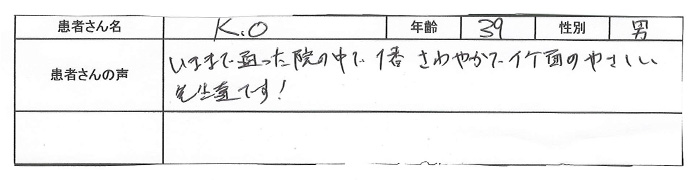 患者さん名 K.O 年齢 39 性別 男
患者さんの声 いままで通った院の中で 1番 さわやかで イケ面のやさしい
先生達です!